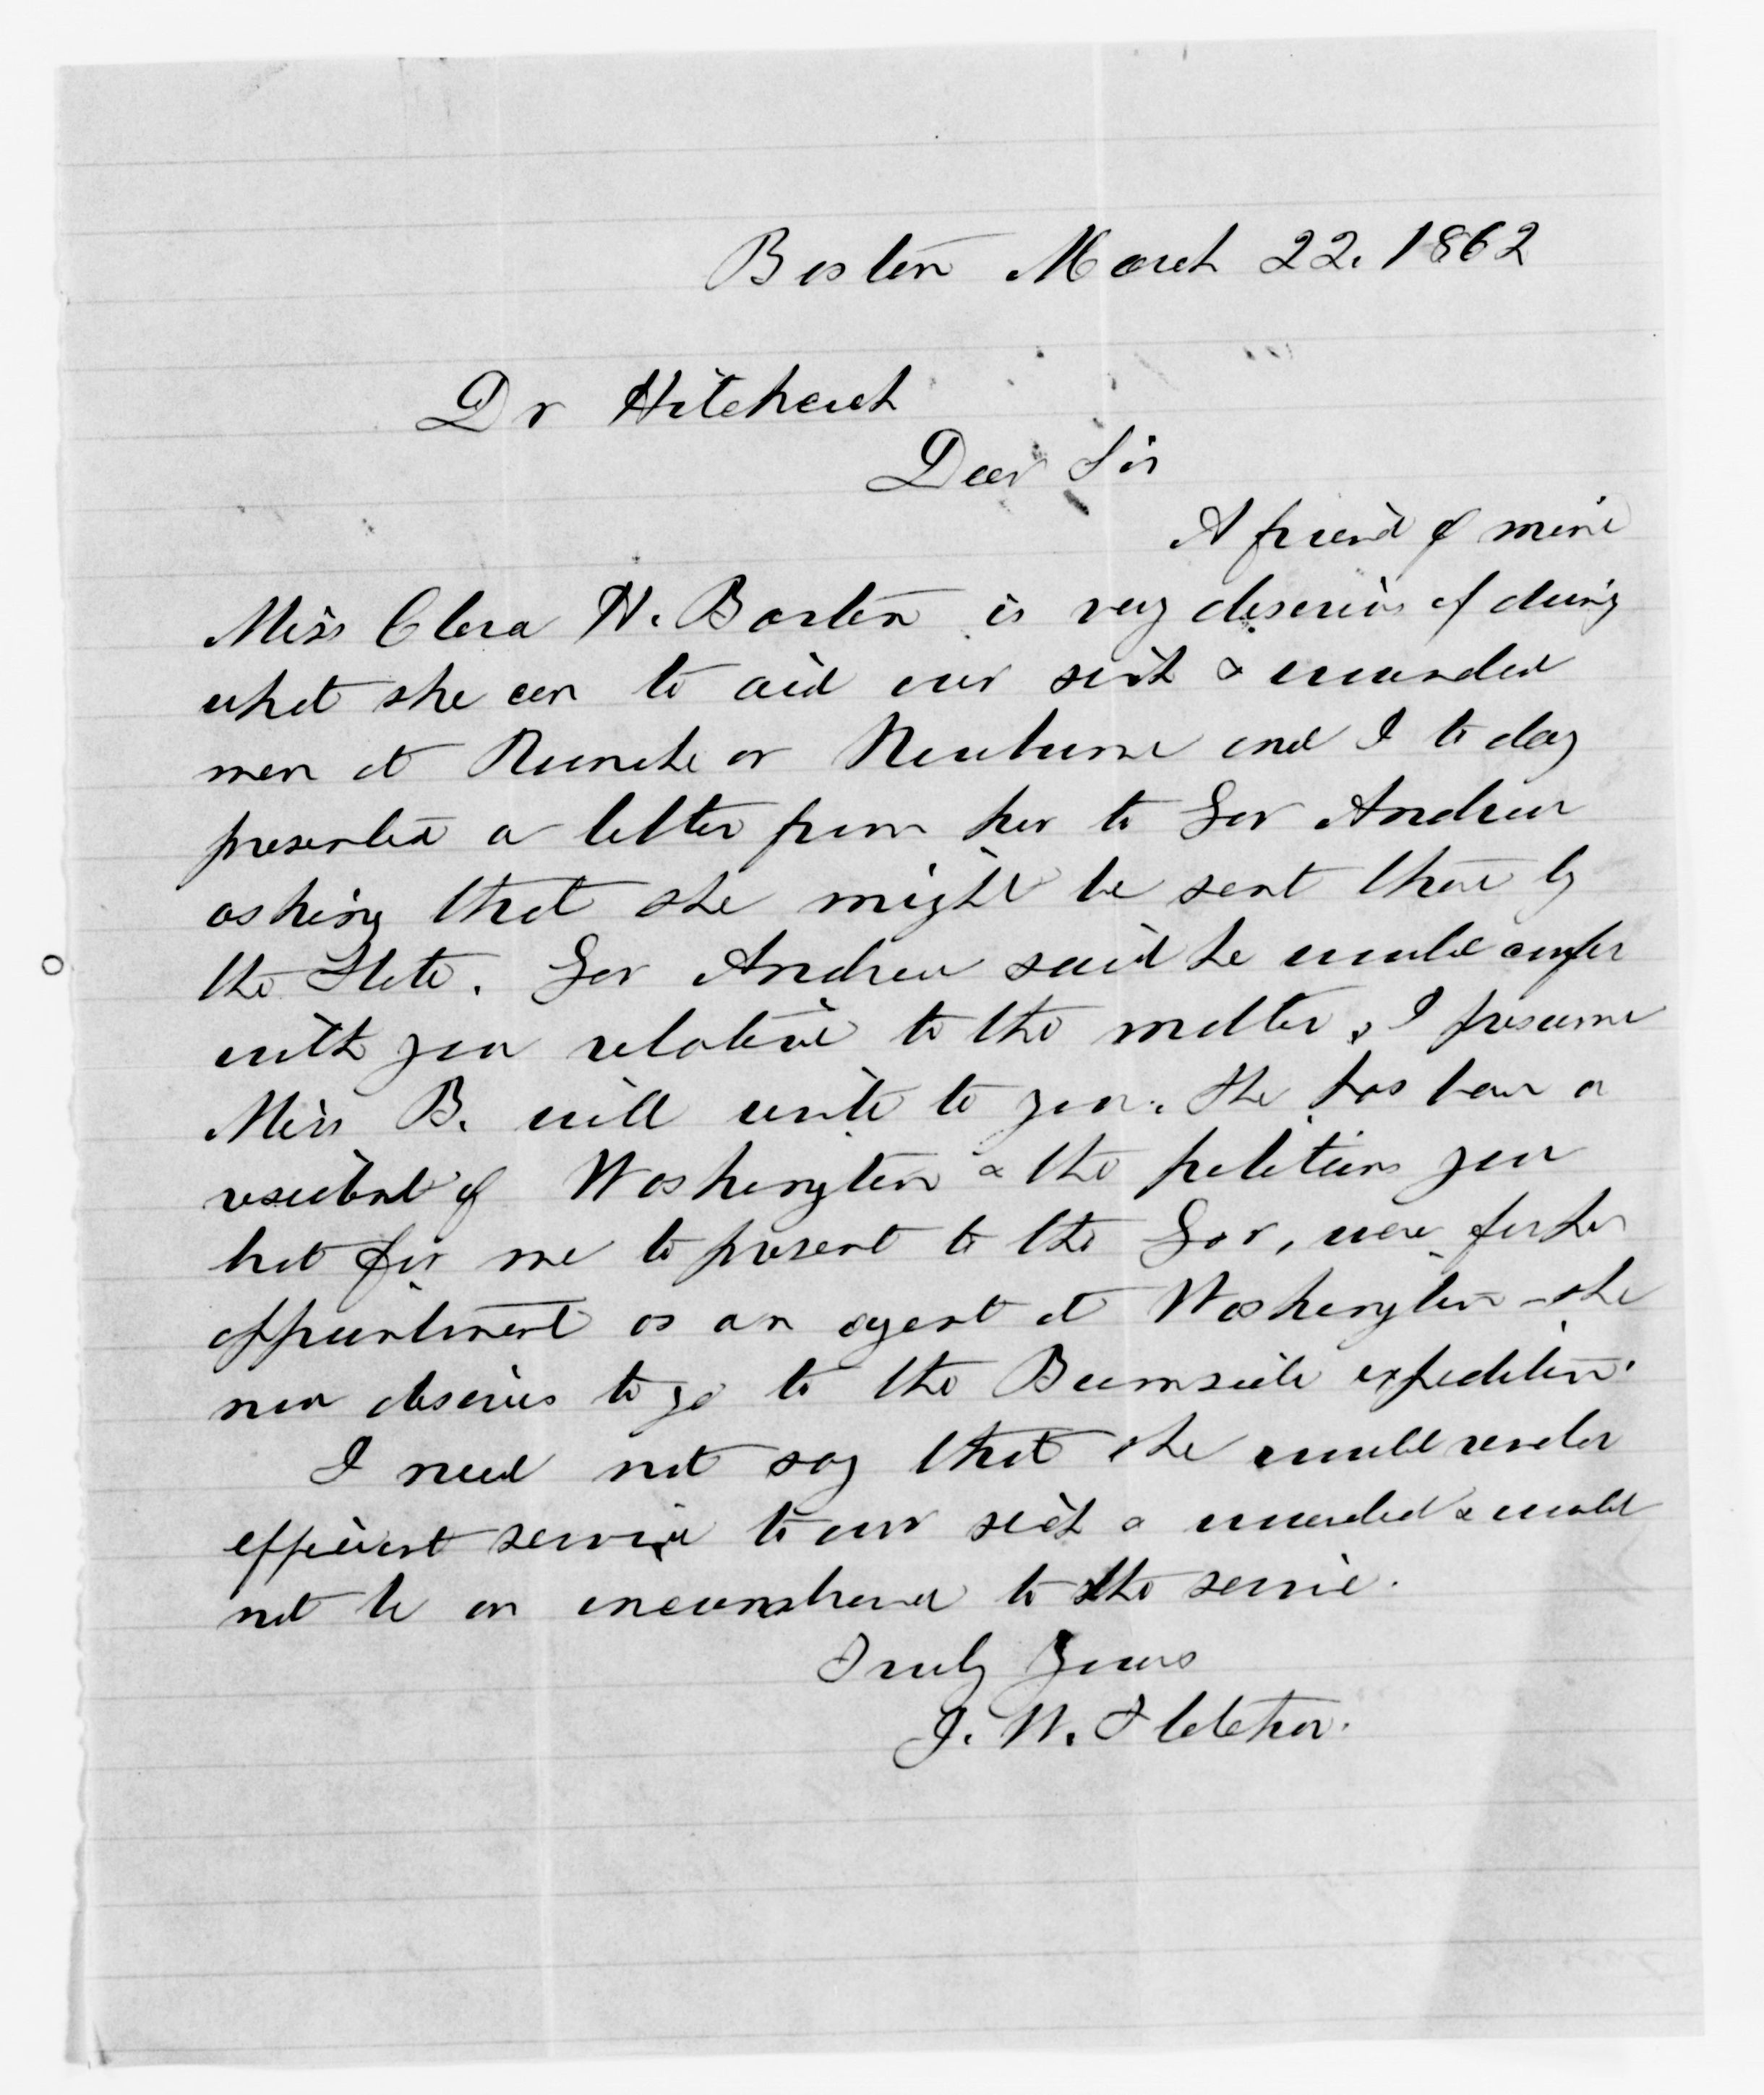 Boston March 22. 1862
Dr Hitchcock
Dear Sir
A friend of mine
Miss Clara H. Barton is very desirous of doing
what she can to aid our sick & wounded
men at Roanoke or Newburne and I to day
presented a letter from her to Gov Andrew
asking that she might be sent there by
the State. Gov Andrew said he would confer
with you relative to the matter, I presume
Miss B. will write to you. She has been a
resident of Washington & the petitions you
had for me to present to the Gov, were for her
appointment as an agent at Washington - she
now desires to go to the Burnside expedition.
I need not say that she would render
efficient service to our sick & wounded & would
not be an incumbrance to the service.
Truly Yours
J. W. Fletcher.